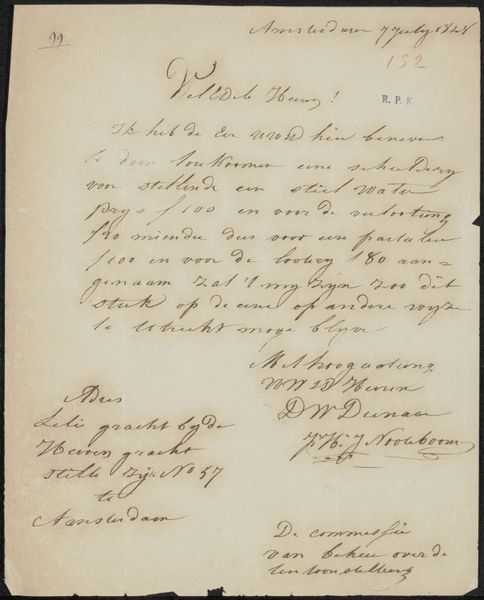 99
Amsterdam 7 July 1828
152
R. P. K.
WelEdele Heeren!
Ik heb de Eer UWEd hier benevens
te doen toekoomen eene schildery
voor stellende een stil Water
prys f 100 en voor de verlooting
f 20 minder dus voor
f 100 en voor de lootery f 80 aan=
genaam zal 't my zijn zoo dit
stuk op de eene of andere wyze
te Utrecht moge blyve
Met hoogachting
UW Ed Heeren
D W Dienaar
J. H. J Nooteboom
Adres
Lelie gracht by de
Heeren gracht
stille zijde No 57
te
Amsterdam
De commissie
van beheer over de
ten toonstelling